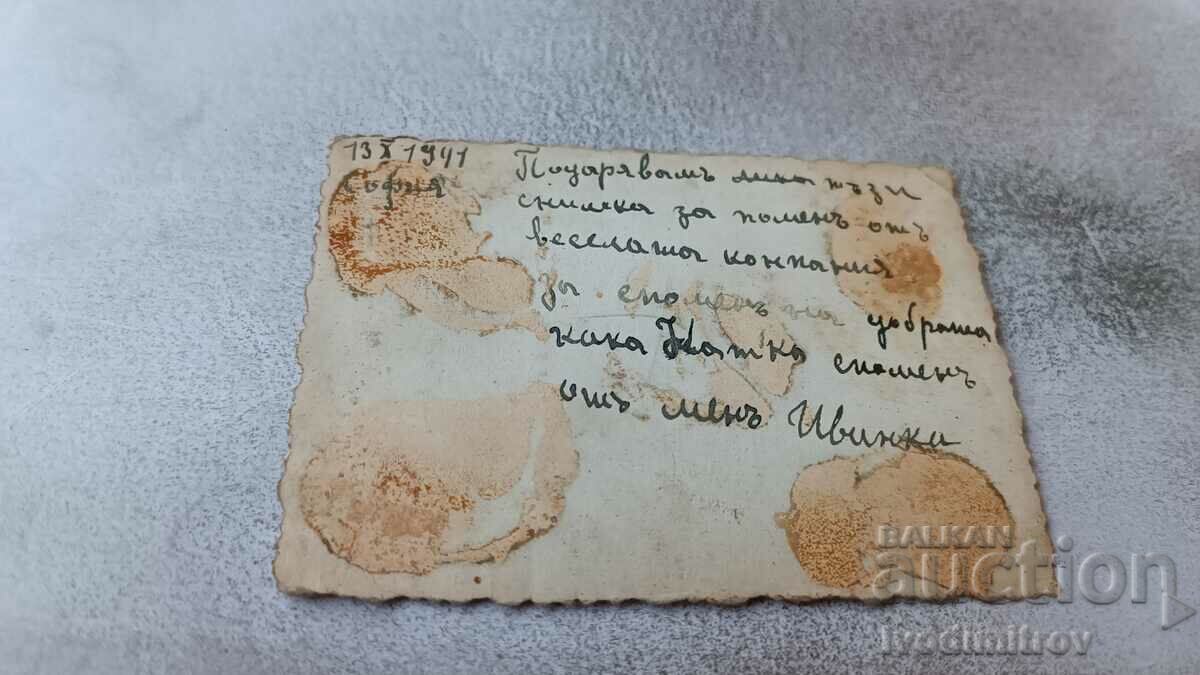 13 X 1941
София
Подарявамъ тъзи
снимка за поменъ отъ
веселата компания
за споменъ на добрата
кака Катка споменъ
отъ менъ Иванка
BALKAN
auction
ivodimitrov